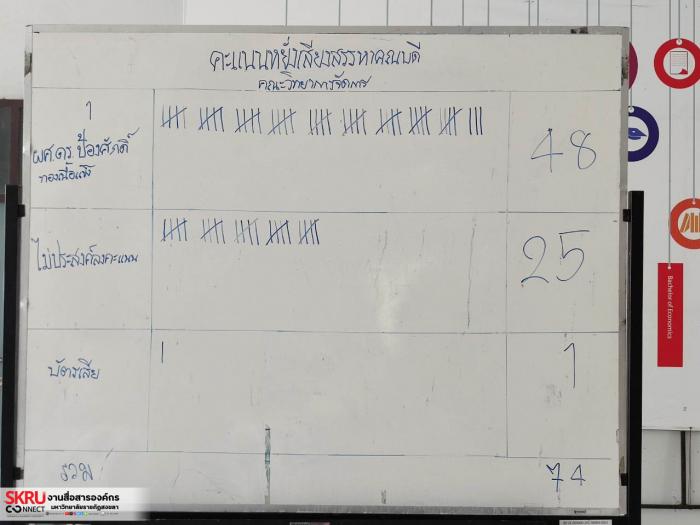 คะแนนหยั่งเสียงสรรหาคณบดี
คณะวิทยาการจัดการ
1
ผศ.ดร.ป้องศักดิ์
ทองเนื้อแข็ง
48
ไม่ประสงค์ลงคะแนน
25
บัตรเสีย
1
รวม
74
Bachelor of Economics
SKRU งานสื่อสารองค์กร
CONNECT มหาวิทยาลัยราชภัฏสงขลา